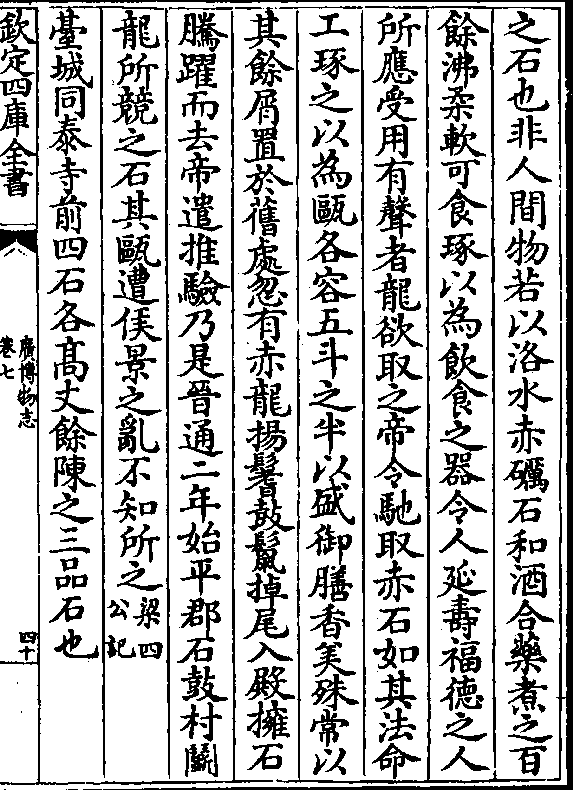 之石也非人間物若以洛水赤礪石和酒合藥煮之百
餘沸柔軟可食琢以為飲食之器令人延壽福德之人
所應受用有聲者龍欲取之帝令馳取赤石如其法命
工琢之以為甌各容五斗之半以盛御膳香美殊常以
其餘屑置於舊處忽有赤龍揚鬐鼓鬛掉尾入殿擁石
騰躍而去帝遣推驗乃是晉通二年始平郡石鼓村鬭
龍所競之石其甌遭侯景之亂不知所之梁四公記
臺城同泰寺前四石各髙丈餘陳之三品石也
欽定四庫全書
廣博物志
卷七
四十